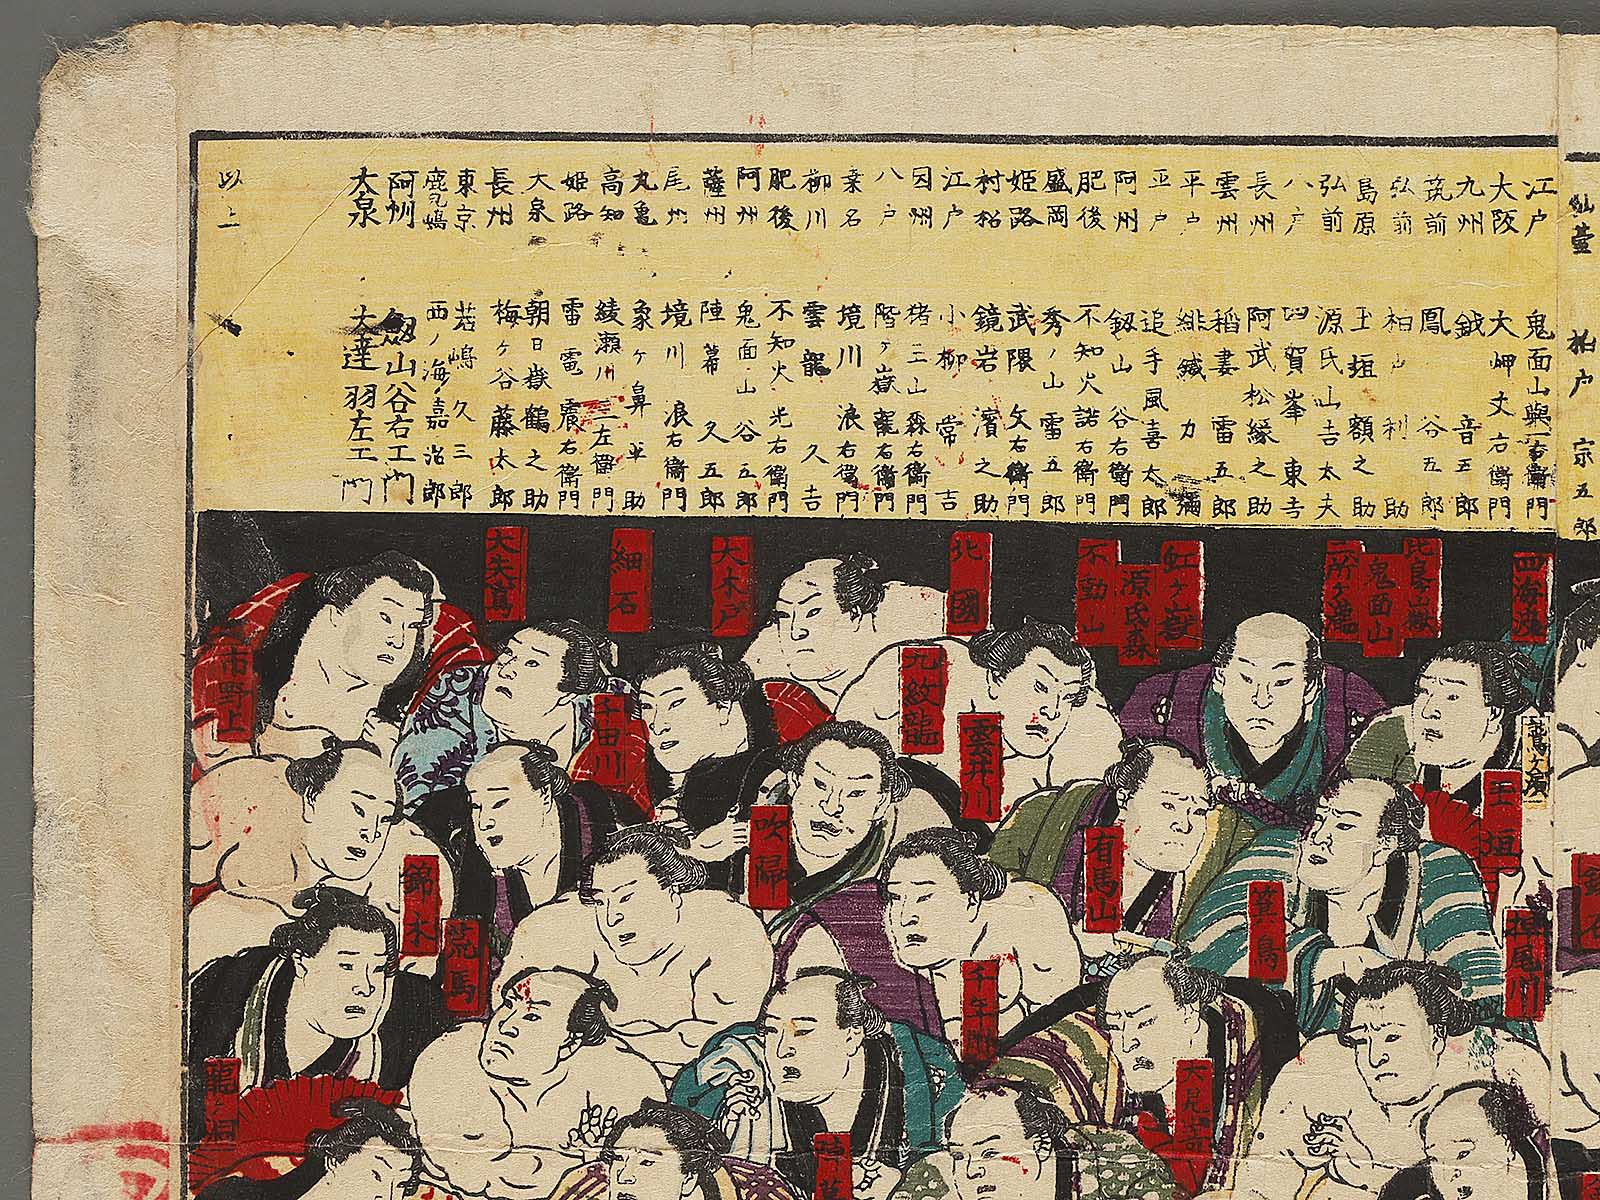 仙臺 柏戸 宗五郎
江戸 鬼面山與一右衞門
大阪 大岬丈右衞門
九州 鉞 音五郎
筑前 鳳 谷五郎
弘前 柏山 利助
島原 玉垣額之助
弘前 源氏山吉太夫
八戸 四賀峯東吉
長州 阿武松緑之助
雲州 稲妻雷五郎
平戸 緋縅力彌
平戸 追手風喜太郎
阿州 釼山谷右衞門
肥後 不知火諾右衞門
盛岡 秀ノ山雷五郎
姫路 武隈文右衞門
村松 鏡岩濱之助
江戸 小柳常吉
因州 猪王山森右衞門
八戸 階ヶ嶽龍右衞門
桑名 境川浪右衞門
柳川 雲龍久吉
肥後 不知火光右衞門
阿州 鬼面山谷五郎
薩州 陣幕久五郎
尾州 境川浪右衞門
丸亀 象ヶ鼻平助
高知 綾瀬川三左衞門
姫路 雷電震右衞門
大泉 朝日嶽鶴之助
長州 梅ヶ谷藤太郎
東京 若嶋久三郎
鹿児嶋 西ノ海嘉治郎
阿州 釼山谷右エ門
大泉 大達羽左エ門
以上
四海波
比良ヶ嶽
鬼面山
二所ヶ滝
虹ヶ嶽
源氏森
不動山
北國
大木戸
細石
大矢嶌
市野上
九紋龍
雲井川
千田川
鷲ヶ濱
玉垣
吹帰
有馬山
錦木
箕島
荒馬
掉尾川
千年川
大見﨑
龍ヶ洞
陣幕